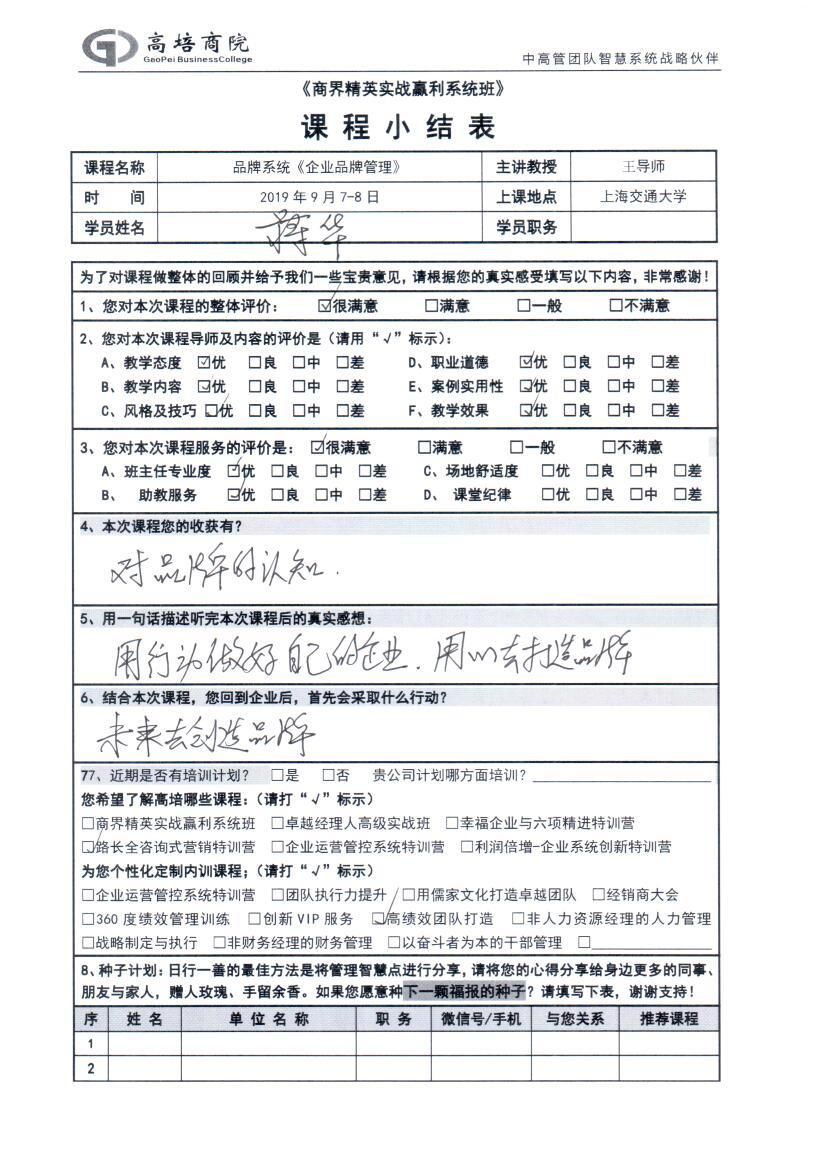 高培商院
GaoPei BusinessCollege
中高管团队智慧系统战略伙伴
《商界精英实战赢利系统班》
课程小结表
课程名称 品牌系统《企业品牌管理》 主讲教授 王导师
时 间 2019年9月7-8日 上课地点 上海交通大学
学员姓名 蒋华 学员职务
为了对课程做整体的回顾并给予我们一些宝贵意见,请根据您的真实感受填写以下内容,非常感谢!
1、您对本次课程的整体评价: ☑很满意 □满意 □一般 □不满意
2、您对本次课程导师及内容的评价是(请用“√”标示):
A、教学态度 ☑优 □良 □中 □差 D、职业道德 ☑优 □良 □中 □差
B、教学内容 ☑优 □良 □中 □差 E、案例实用性 ☑优 □良 □中 □差
C、风格及技巧 ☑优 □良 □中 □差 F、教学效果 ☑优 □良 □中 □差
3、您对本次课程服务的评价是: ☑很满意 □满意 □一般 □不满意
A、班主任专业度 ☑优 □良 □中 □差 C、场地舒适度 □优 □良 □中 □差
B、 助教服务 ☑优 □良 □中 □差 D、 课堂纪律 □优 □良 □中 □差
4、本次课程您的收获有?
对品牌的认知.
5、用一句话描述听完本次课程后的真实感想:
用行动做好自己的企业.用心去打造品牌
6、结合本次课程,您回到企业后,首先会采取什么行动?
未来去创造品牌
77、近期是否有培训计划? □是 □否 贵公司计划哪方面培训?
您希望了解高培哪些课程:(请打“√”标示)
□商界精英实战赢利系统班 □卓越经理人高级实战班 □幸福企业与六项精进特训营
☑路长全咨询式营销特训营 □企业运营管控系统特训营 □利润倍增-企业系统创新特训营
为您个性化定制内训课程;(请打“√”标示)
□企业运营管控系统特训营 □团队执行力提升 □用儒家文化打造卓越团队 □经销商大会
□360度绩效管理训练 □创新VIP服务 ☑高绩效团队打造 □非人力资源经理的人力管理
□战略制定与执行 □非财务经理的财务管理 □以奋斗者为本的干部管理 □
8、种子计划:日行一善的最佳方法是将管理智慧点进行分享,请将您的心得分享给身边更多的同事、
朋友与家人,赠人玫瑰、手留余香。如果您愿意种下一颗福报的种子?请填写下表,谢谢支持!
序 姓名 单位名称 职务 微信号/手机 与您关系 推荐课程
1
2